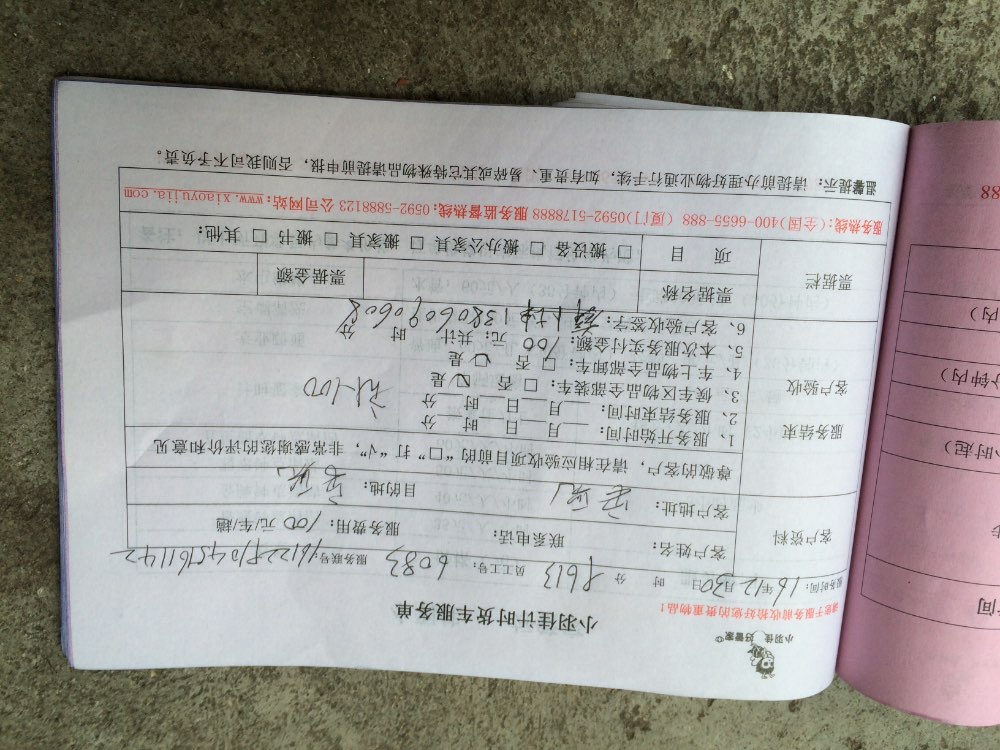 小羽佳 好管家
小羽佳计时货车服务单
请您于服务前收拾好您的贵重物品！
服务时间：16年12月30日 时 分 员工工号：6083 服务联号：
客户资料
客户姓名： 联系电话： 服务费用：100元/车/趟
客户地址： 目的地：
尊敬的客户，请在相应验收项目前的“□”打“√”，非常感谢您的评价和意见
服务结束
客户验收
1、服务开始时间： 月 日 时 分
2、服务结束时间： 月 日 时 分
3、候车区物品全部装车：□ 否 □ 是
4、车上物品全部卸车：□ 否 □ 是
5、本次服务实付金额：100 元；共计： 时 分
6、客户验收签字： 13806090608
票据栏
票据名称 票据金额
项 目 □ 搬设备 □ 搬办公家具 □ 搬家具 □ 搬书 □ 其他：
服务热线：(全国)400-6655-888 (厦门)0592-5178888 服务监督热线：0592-5888123 公司网站：www.xiaoyujia.com
温馨提示：请提前办理好物业通行手续，如有贵重、易碎或其它特殊物品请提前申报，否则我司不予负责。
88
内）
钟内）
小时起）